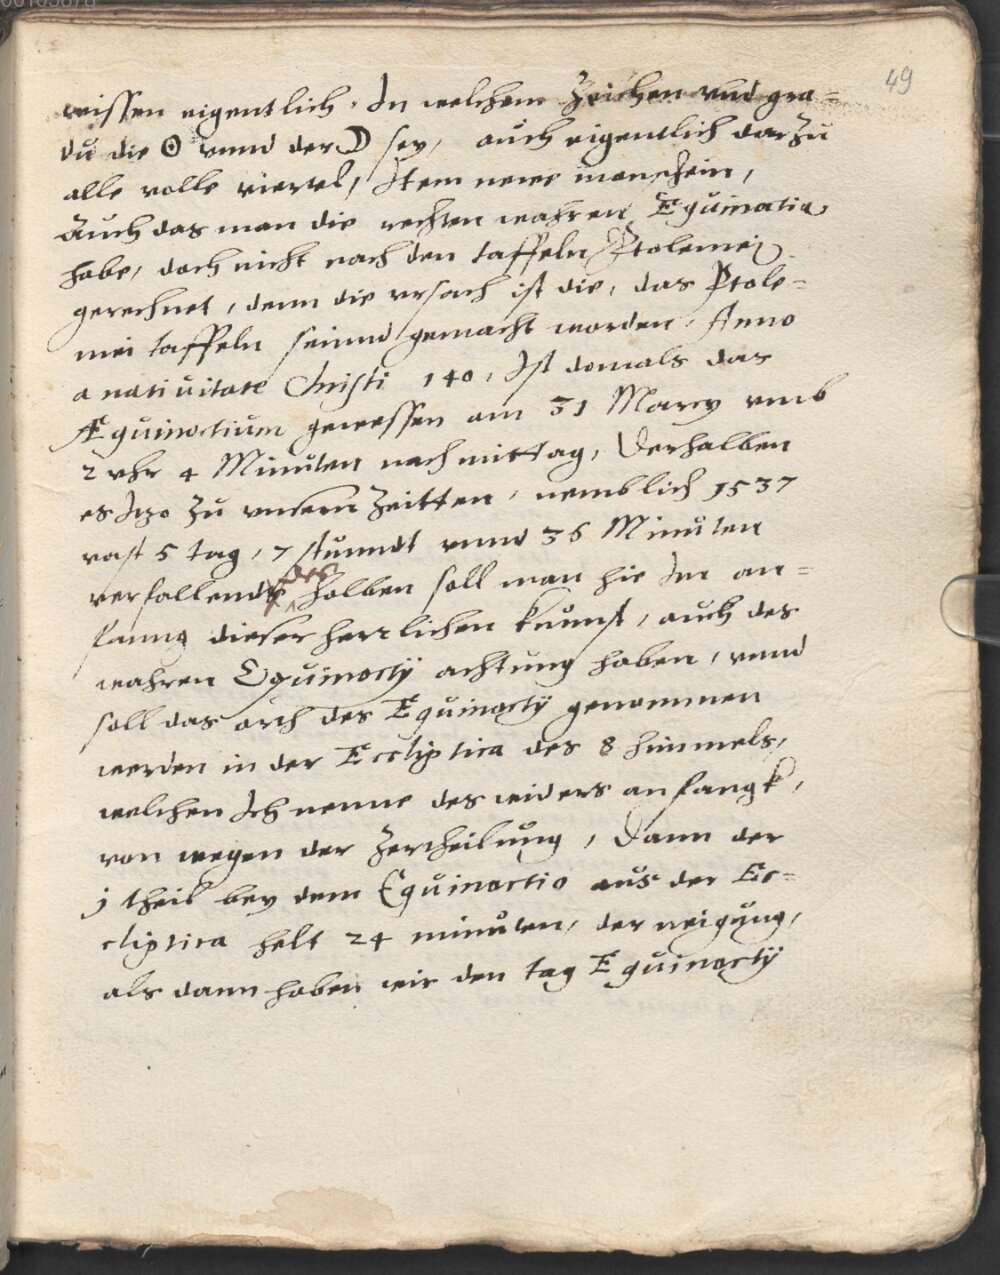 49
wissen eigentlich. In welchem Zeichen vnd gra=
du die ☉ vnnd der ☽ sey, auch eigentlich darzu
alle volle viertel, Item newe monschein,
Auch das man die rechten wahren Equinoctia
habe, doch nicht nach den taffeln Ptolemei
gerechnet, denn die vrsach ist die, das Ptole=
mei taffeln seinnd gemacht worden. Anno
a natiuitate Christi 140, Ist domals das
Æquinoctium gewessen am 31 Marcy vmb
2 vhr 4 Minuten nach mittag, Derhalben
es Itzo zu vnsern Zeitten, nemblich 1537
vast 5 tag, 7 stunndt vnnd 36 Minuten
verfallend des halben soll man hie Im an=
fanng dieser herrlichen kunnst, auch des
wahren Equinocty achtung haben, vnnd
soll das orth des Equinocty genommen
werden in der Eccliptica des 8 himmels,
welchen Ich nenne des widers anfangk,
von wegen der Zertheilung, Dann der
j theil bey dem Equinoctio aus der Ec=
cliptica helt 24 minuten, der neigung,
als dann haben wir den tag Equinocty